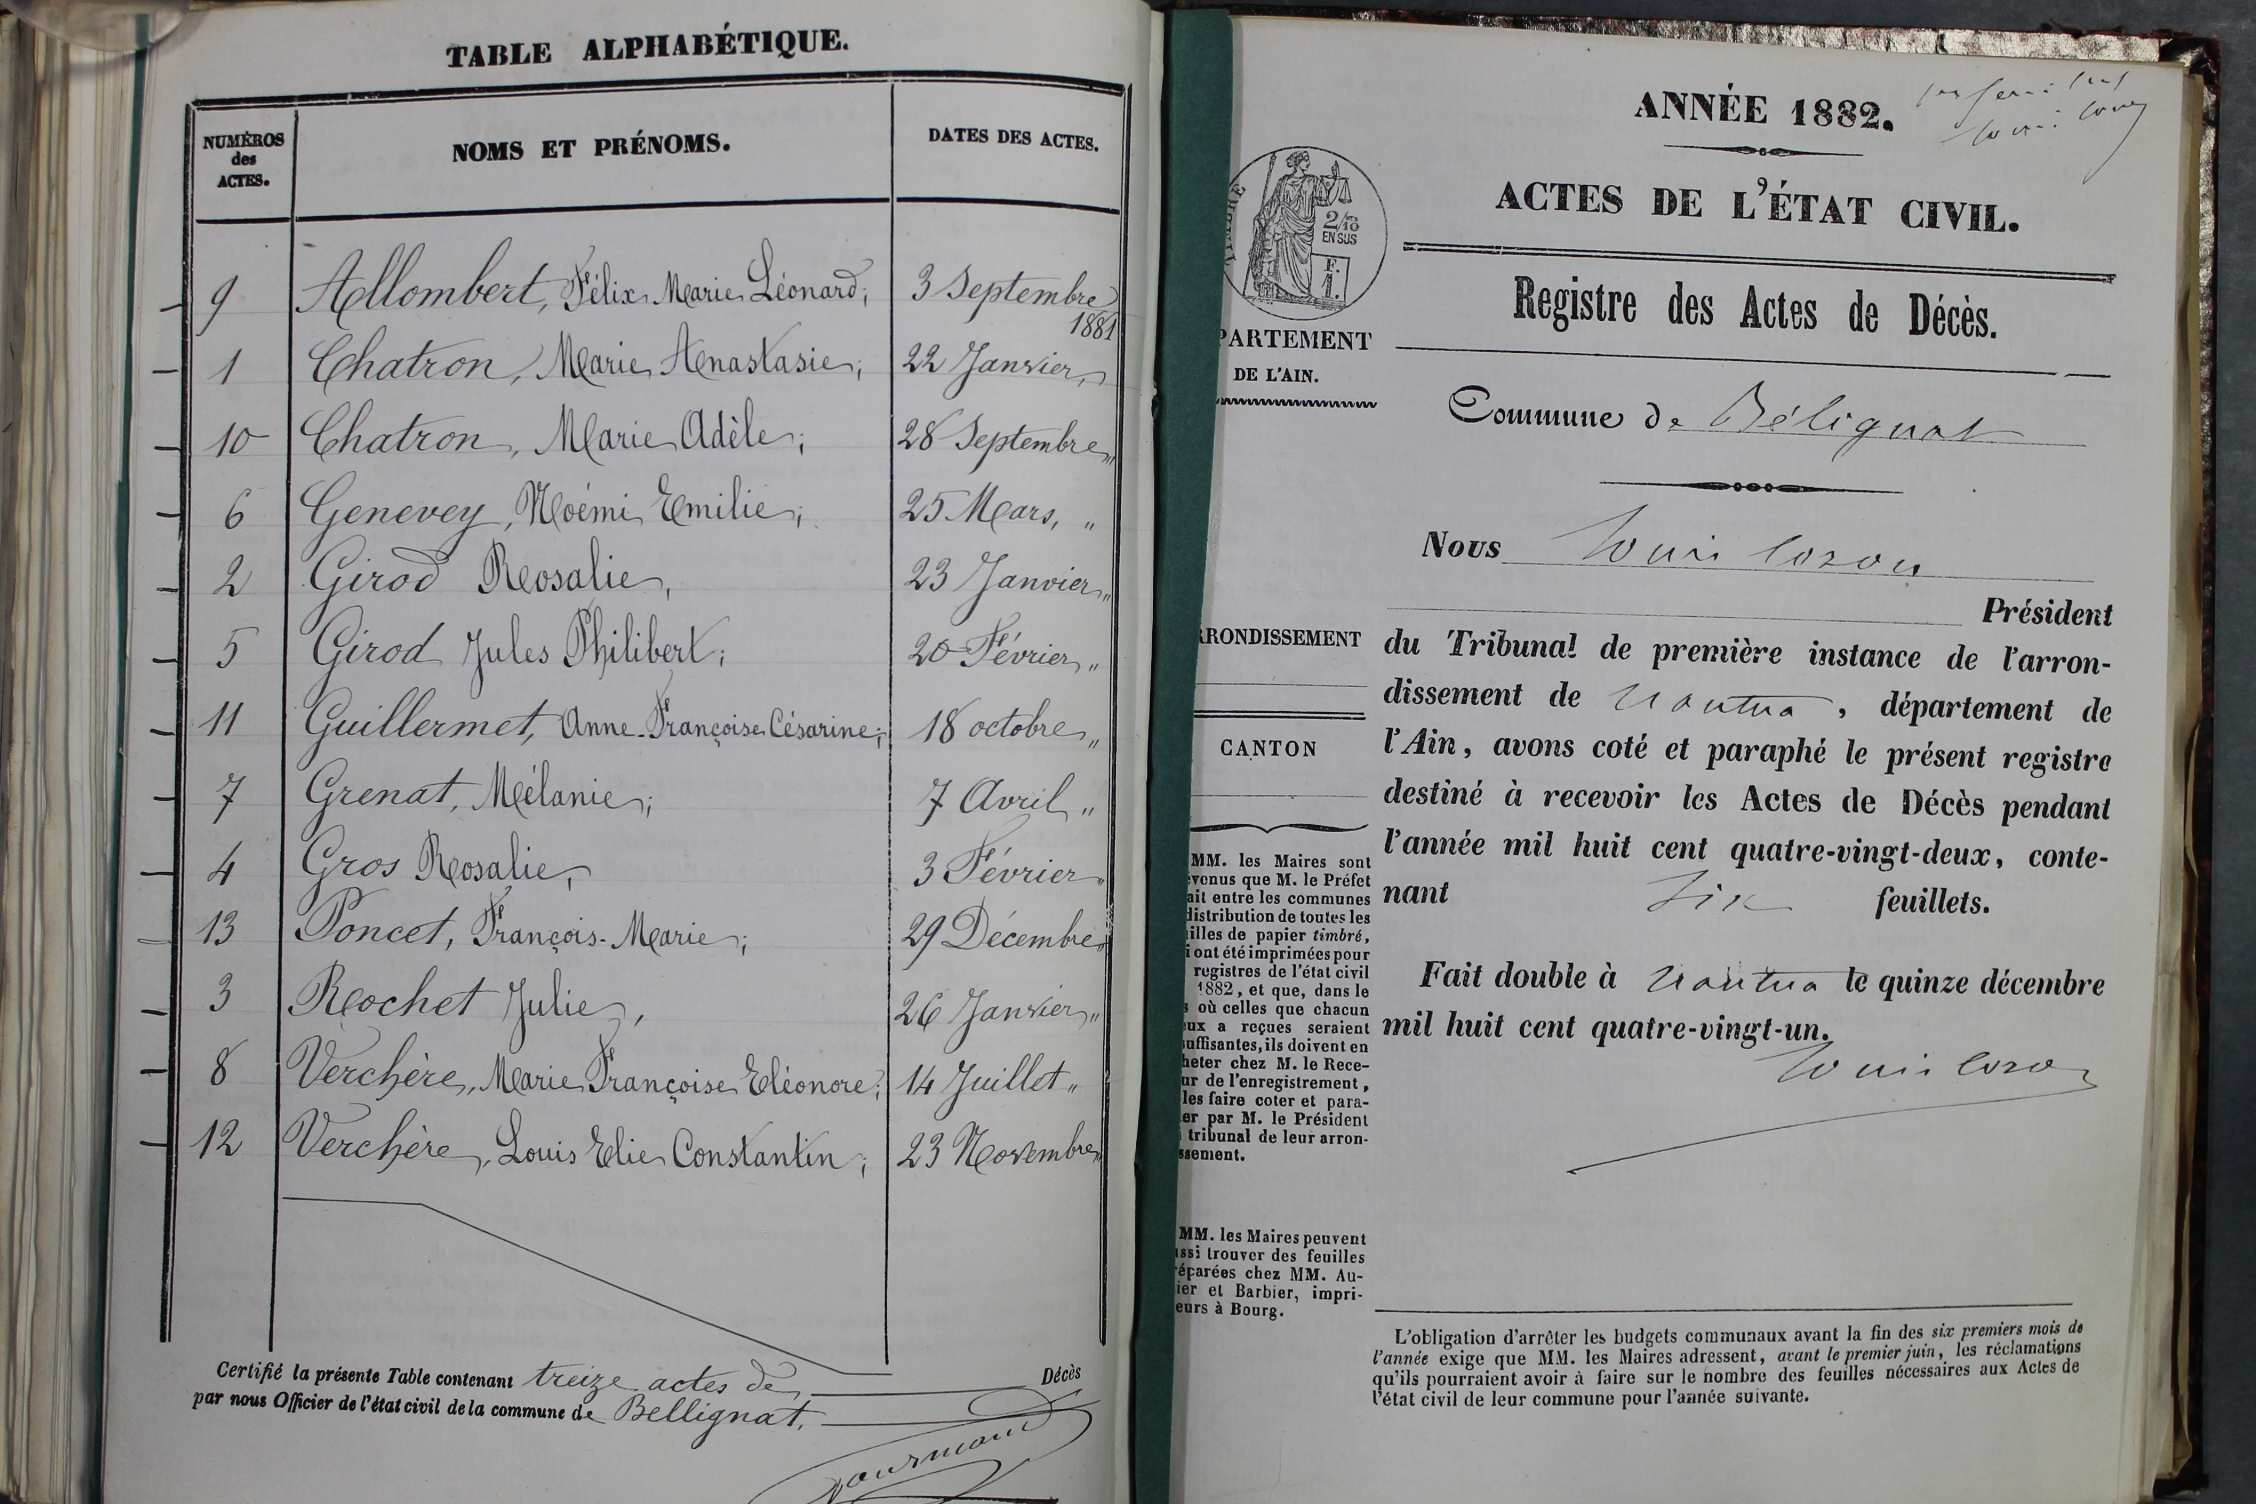 TABLE ALPHABÉTIQUE.
NUMÉROS des ACTES.
NOMS ET PRÉNOMS.
DATES DES ACTES.
9 Allombert, Félix Marie Léonard; 3 Septembre 1881
1 Chatron, Marie Anastasie; 22 Janvier, "
10 Chatron, Marie Adèle; 28 Septembre "
6 Genevey, Noémi Emilie; 25 Mars, "
2 Girod Rosalie, 23 Janvier "
5 Girod Jules Philibert; 20 Février "
11 Guillermet, Anne-Françoise Césarine; 18 octobre "
7 Grenat, Mélanie; 7 Avril "
4 Gros Rosalie, 3 Février "
13 Poncet, François-Marie; 29 Décembre "
3 Rochet Julie, 26 Janvier "
8 Verchère, Marie Françoise Eléonore; 14 Juillet "
12 Verchère, Louis Elie Constantin; 23 Novembre "
Certifié la présente Table contenant treize actes de Décès
par nous Officier de l'état civil de la commune de Bellignat.
ANNÉE 1882.
ACTES DE L'ÉTAT CIVIL.
Registre des Actes de Décès.
TIMBRE
2/10
EN SUS
F.
1.
PARTEMENT
DE L'AIN.
Commune de Bélignat
Nous Louis Cozon
Président
RONDISSEMENT
du Tribunal de première instance de l'arron-
dissement de Nantua, département de
CANTON
l'Ain, avons coté et paraphé le présent registre
destiné à recevoir les Actes de Décès pendant
l'année mil huit cent quatre-vingt-deux, conte-
nant Six feuillets.
Fait double à Nantua le quinze décembre
mil huit cent quatre-vingt-un.
Louis Cozon
MM. les Maires sont
venus que M. le Préfet
ait entre les communes
distribution de toutes les
illes de papier timbré,
i ont été imprimées pour
registres de l'état civil
1882, et que, dans le
s où celles que chacun
eux a reçues seraient
suffisantes, ils doivent en
heter chez M. le Rece-
ur de l'enregistrement,
les faire coter et para-
er par M. le Président
tribunal de leur arron-
ssement.
MM. les Maires peuvent
ussi trouver des feuilles
réparées chez MM. Au-
ier et Barbier, impri-
eurs à Bourg.
L'obligation d'arrêter les budgets communaux avant la fin des six premiers mois de
l'année exige que MM. les Maires adressent, avant le premier juin, les réclamations
qu'ils pourraient avoir à faire sur le nombre des feuilles nécessaires aux Actes de
l'état civil de leur commune pour l'année suivante.